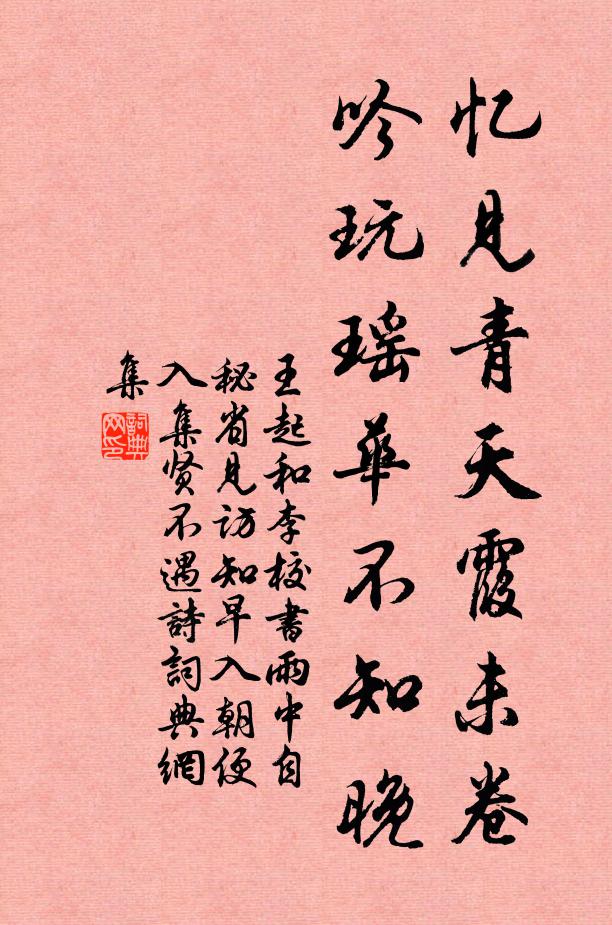 忆见青天霞未卷
吟玩瑶華不知晚
王起和李校書雨中自
秘省见访知早入朝便
入集贤不遇詩詞典網
集
詞典
网印